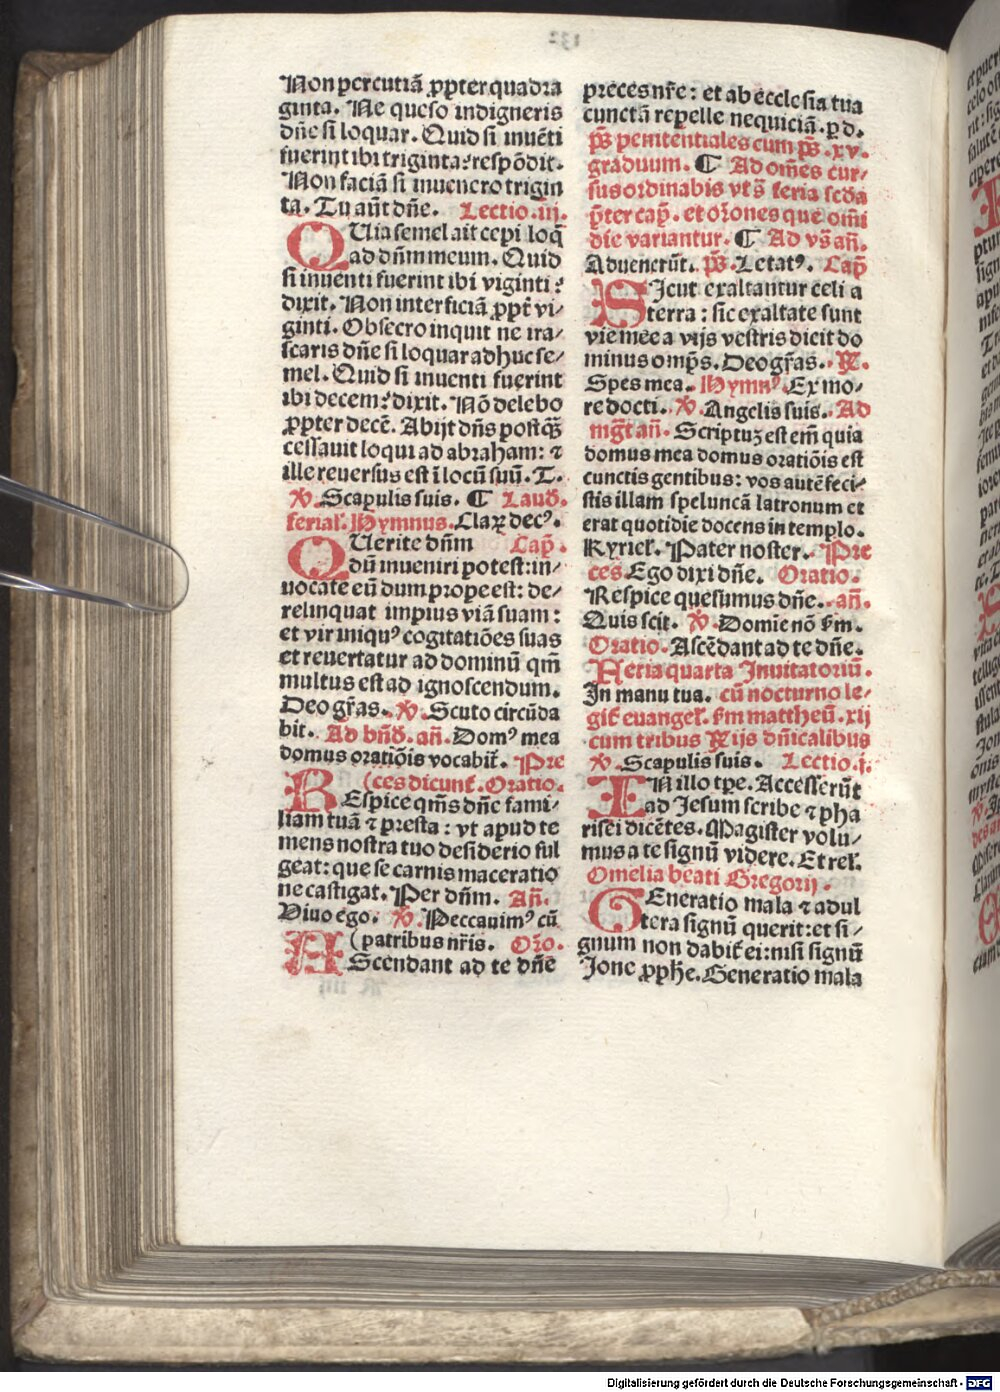 Non percutiā ꝓpter quadra
ginta. Ne queso indigneris
dn̄e si loquar. Quid si inuēti
fuerint ibi triginta: respōdit.
Non faciā si inuenero trigin
ta. Tu aūt dn̄e. Lectio .iij.
QUia semel ait cepi loq̄
ad dn̄m meum. Quid
si inuenti fuerint ibi viginti:
dixit. Non interficiā ꝓpt̄ vi/
ginti. Obsecro inquit ne ira/
scaris dn̄e si loquar adhuc se/
mel. Quid si inuenti fuerint
ibi decem: dixit. Nō delebo
ꝓpter decē. Abijt dn̄s postqȝ̄
cessauit loqui ad abraham: ⁊
ille reuersus est ī locū suū. T.
℣. Scapulis suis. ¶ Laud̄.
ferial̄. Hymnus. Claꝝ decꝰ.
QUerite dn̄m Cap̄.
dū inueniri potest: in/
uocate eū dum prope est: de/
relinquat impius viā suam:
et vir iniquꝰ cogitatiōes suas
et reuertatur ad dominū qm̄
multus est ad ignoscendum.
Deo gr̄as. ℣. Scuto circūda
bit. Ad bn̄d̄. an̄. Domꝰ mea
domus oratiōis vocabit̄. Pre
(ces dicunt̄. Oratio.
REspice qm̄s dn̄e fami/
liam tuā ⁊ p̄resta: vt apud te
mens nostra tuo desiderio ful
geat: que se carnis maceratio
ne castigat. Per dn̄m. An̄.
Uiuo ego. ℣. Peccauimꝰ cū
(patribus nr̄is. Oro.
AScendant ad te dn̄e
preces nr̄e: et ab ecclesia tua
cunctā repelle nequiciā. ꝑ d.
ps̄ penitentiales cum ps̄. xv.
graduum. ¶ Ad om̄es cur/
sus ordinabis vt s̄ feria scd̄a
p̄ter cap̄. et or̄ones que om̄i
die variantur. ¶ Ad vs̄ an̄.
Aduenerūt. ps̄. Letatꝰ. Cap̄
SIcut exaltantur celi a
terra: sic exaltate sunt
vie mee a vijs vestris dicit do
minus omp̄s. Deo gr̄as. ℟.
Spes mea. Hymnꝰ. Ex mo/
re docti. ℣. Angelis suis. Ad
mgt̄ an̄. Scriptuȝ est em̄ quia
domus mea domus oratiōis est
cunctis gentibus: vos autē feci/
stis illam speluncā latronum et
erat quotidie docens in templo.
Kyriel̄. Pater noster. Pre
ces Ego dixi dn̄e. Oratio.
Respice quesumus dn̄e. an̄.
Quis scit. ℣. Domīe nō s̄m.
Oratio. Ascēdant ad te dn̄e.
Feria quarta Inuitatoriū.
In manu tua. cū nocturno le/
git̄ euangel̄. s̄m mattheū. xij
cum tribus ℟ijs dn̄icalibus
℣. Scapulis suis. Lectio .j.
IN illo tp̄e. Accesserūt
ad Jesum scribe ⁊ pha
risei dicētes. Magister volu/
mus a te signū videre. Et rel̄.
Omelia beati Gregorij.
GEneratio mala ⁊ adul
tera signū querit: et si/
gnum non dabit̄ ei: nisi signū
Jone ꝓph̄e. Generatio mala
Digitalisierung gefördert durch die Deutsche Forschungsgemeinschaft - DFG